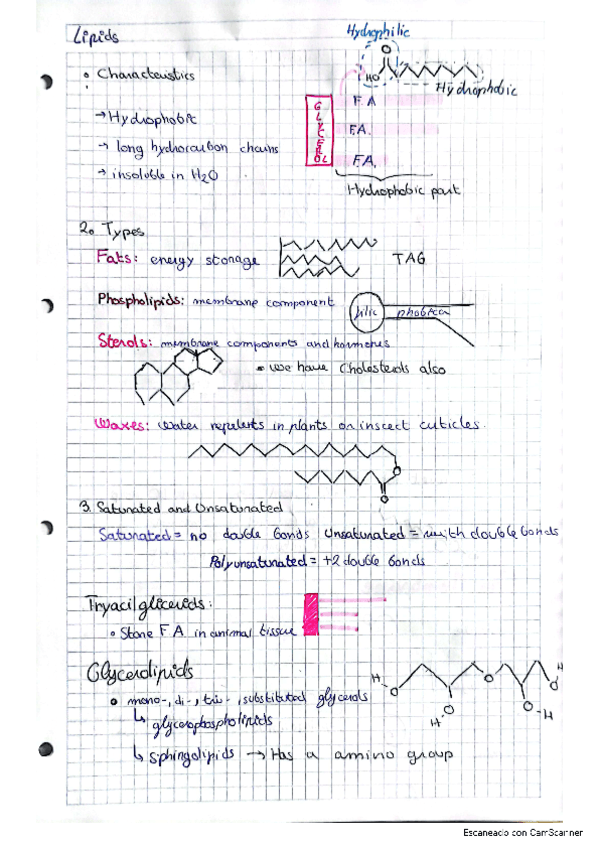 Lipids
Hydrophilic
O
HO
Hydrophobic
• Characteristics
→ Hydrophobic
→ long hydrocarbon chains
→ insoluble in H2O
GLYCEROL
F A
F.A.
F.A.
Hydrophobic part
2. Types
Fats: energy storage
TAG
Phospholipids: membrane component
philic
phobica
Sterols: membrane components and hormones
• we have Cholesterols also
Waxes: water repelents in plants on insect cuticles.
O
O
3. Saturated and Unsaturated
Saturated = no double bonds Unsaturated = with double bonds
Polyunsaturated = +2 double bonds
Tryacilglicerids:
• Store F A in animal tissue
Glycerolipids
• mono-, di-, tri-, substituted glycerols
↳ glycerophospholipids
↳ sphingolipids → Has a amino group
H O
H O
O
O-H
O H
Escaneado con CamScanner